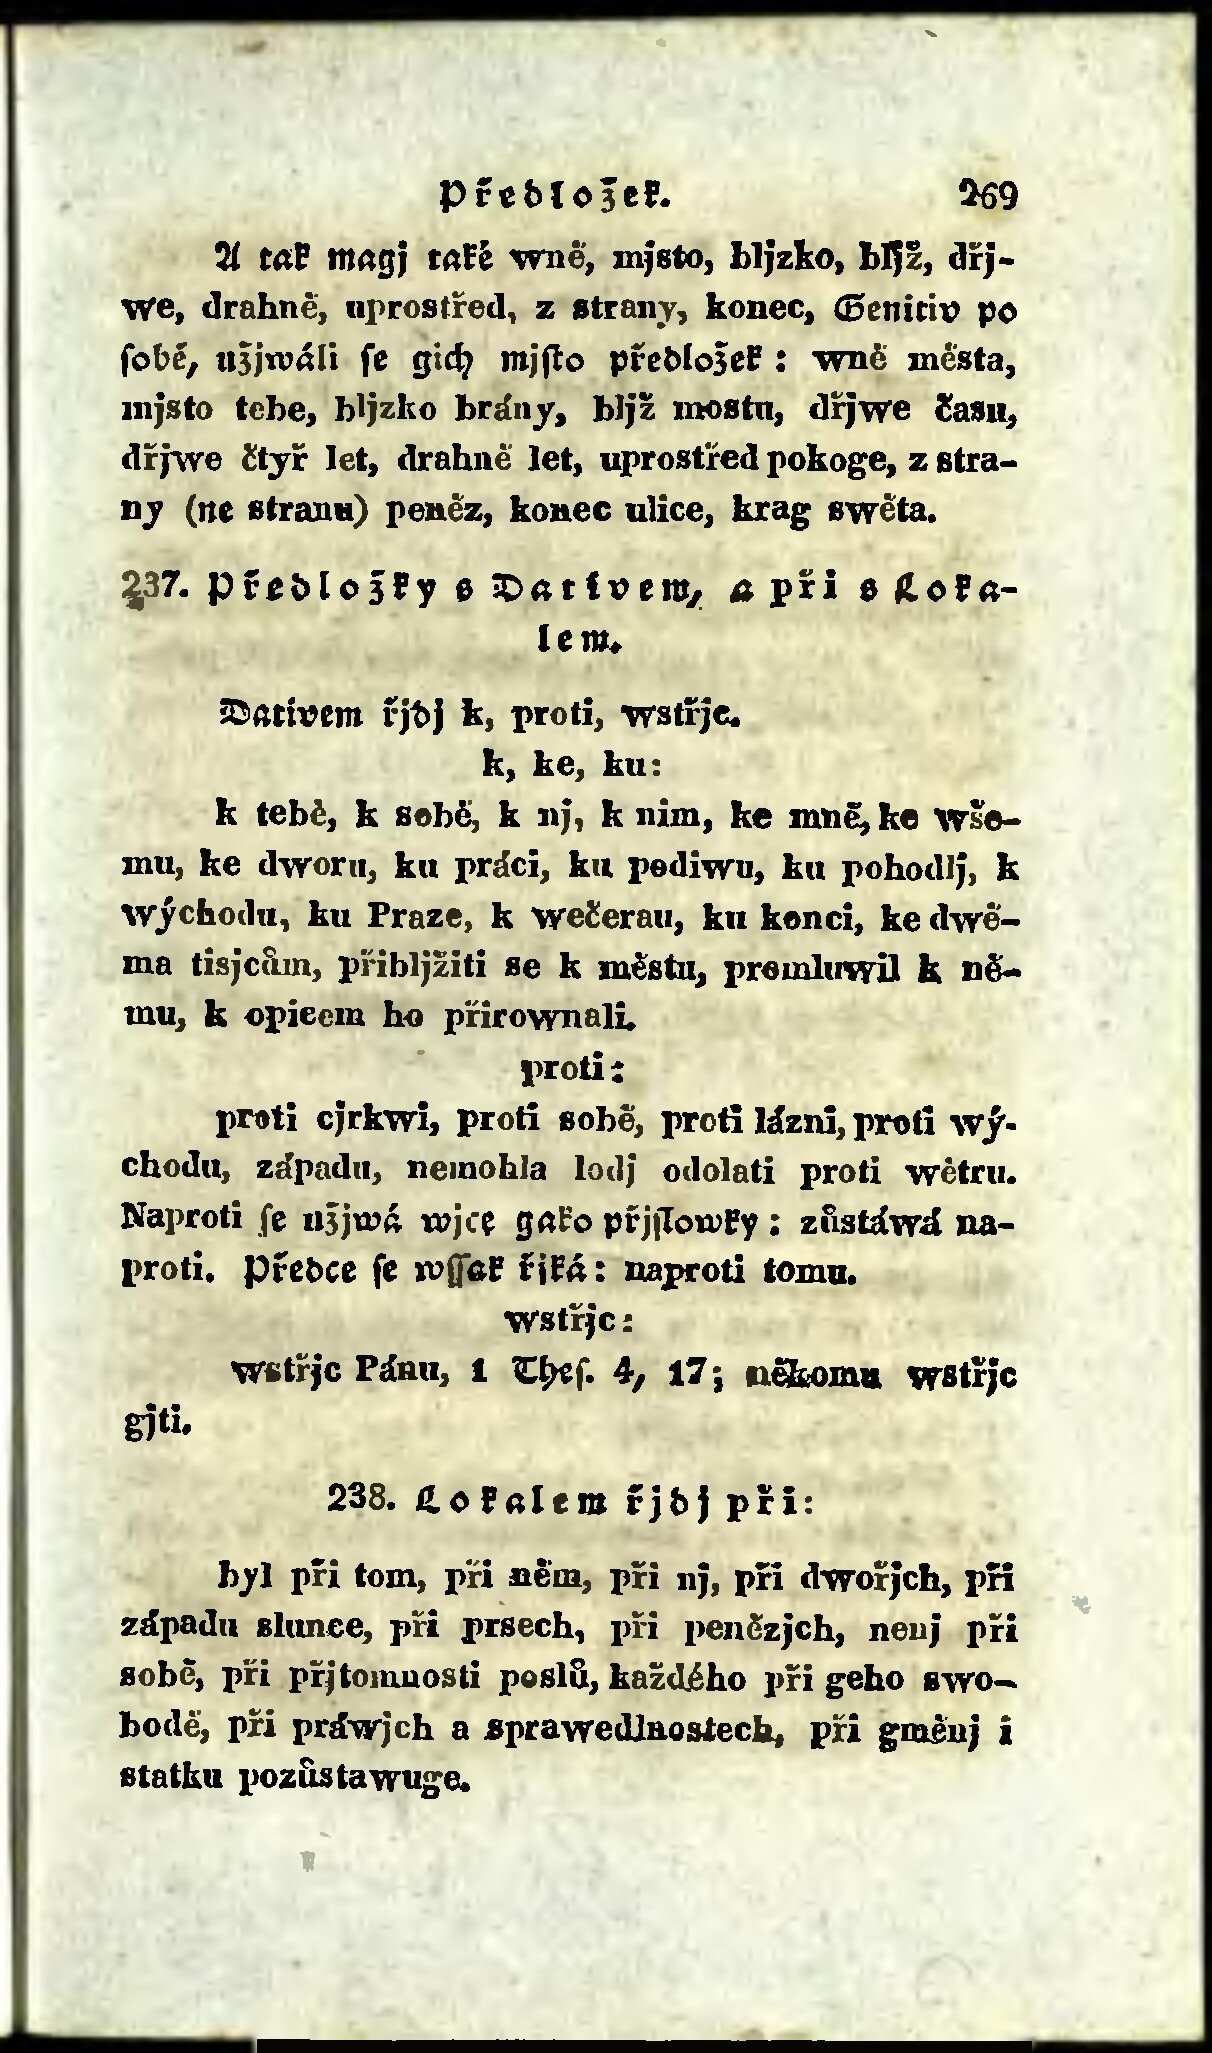 Předložek. 269
A tak magj také wně, mjsto, bljzko, bljž, dřj-
we, drahně, uprostřed, z strany, konec, Genitiv po
ſobě, užjwáli ſe gich mjſto předložek: wně města,
mjsto tebe, bljzko brány, bljž mostu, dřjwe času,
dřjwe čtyř let, drahně let, uprostřed pokoge, z stra-
ny (ne stranu) peněz, konec ulice, krag swěta.
237. Předložky s Dativem, a při s Loka-
lem.
Dativem řjdj k, proti, wstřjc.
k, ke, ku:
k tebě, k sobě, k nj, k nim, ke mně, ke wše-
mu, ke dworu, ku práci, ku podiwu, ku pohodlj, k
wýchodu, ku Praze, k wečerau, ku konci, ke dwě-
ma tisjcům, přibljžiti se k městu, promluwil k ně-
mu, k opicem ho přirownali.
proti:
proti cjrkwi, proti sobě, proti lázni, proti wý-
chodu, západu, nemohla lodj odolati proti wětru.
Naproti ſe užjwá wjce gako přjſlowky: zůstáwá na-
proti. Předce ſe wſſak řjká: naproti tomu.
wstřjc:
wstřjc Pánu, 1 Theſ. 4, 17; někomu wstřjc
gjti.
238. Lokalem řjdj při:
byl při tom, při něm, při nj, při dwořjch, při
západu slunce, při prsech, při penězjch, nenj při
sobě, při přjtomnosti poslů, každého při geho swo-
bodě, při práwjch a sprawedlnostech, při gměnj i
statku pozůstawuge.